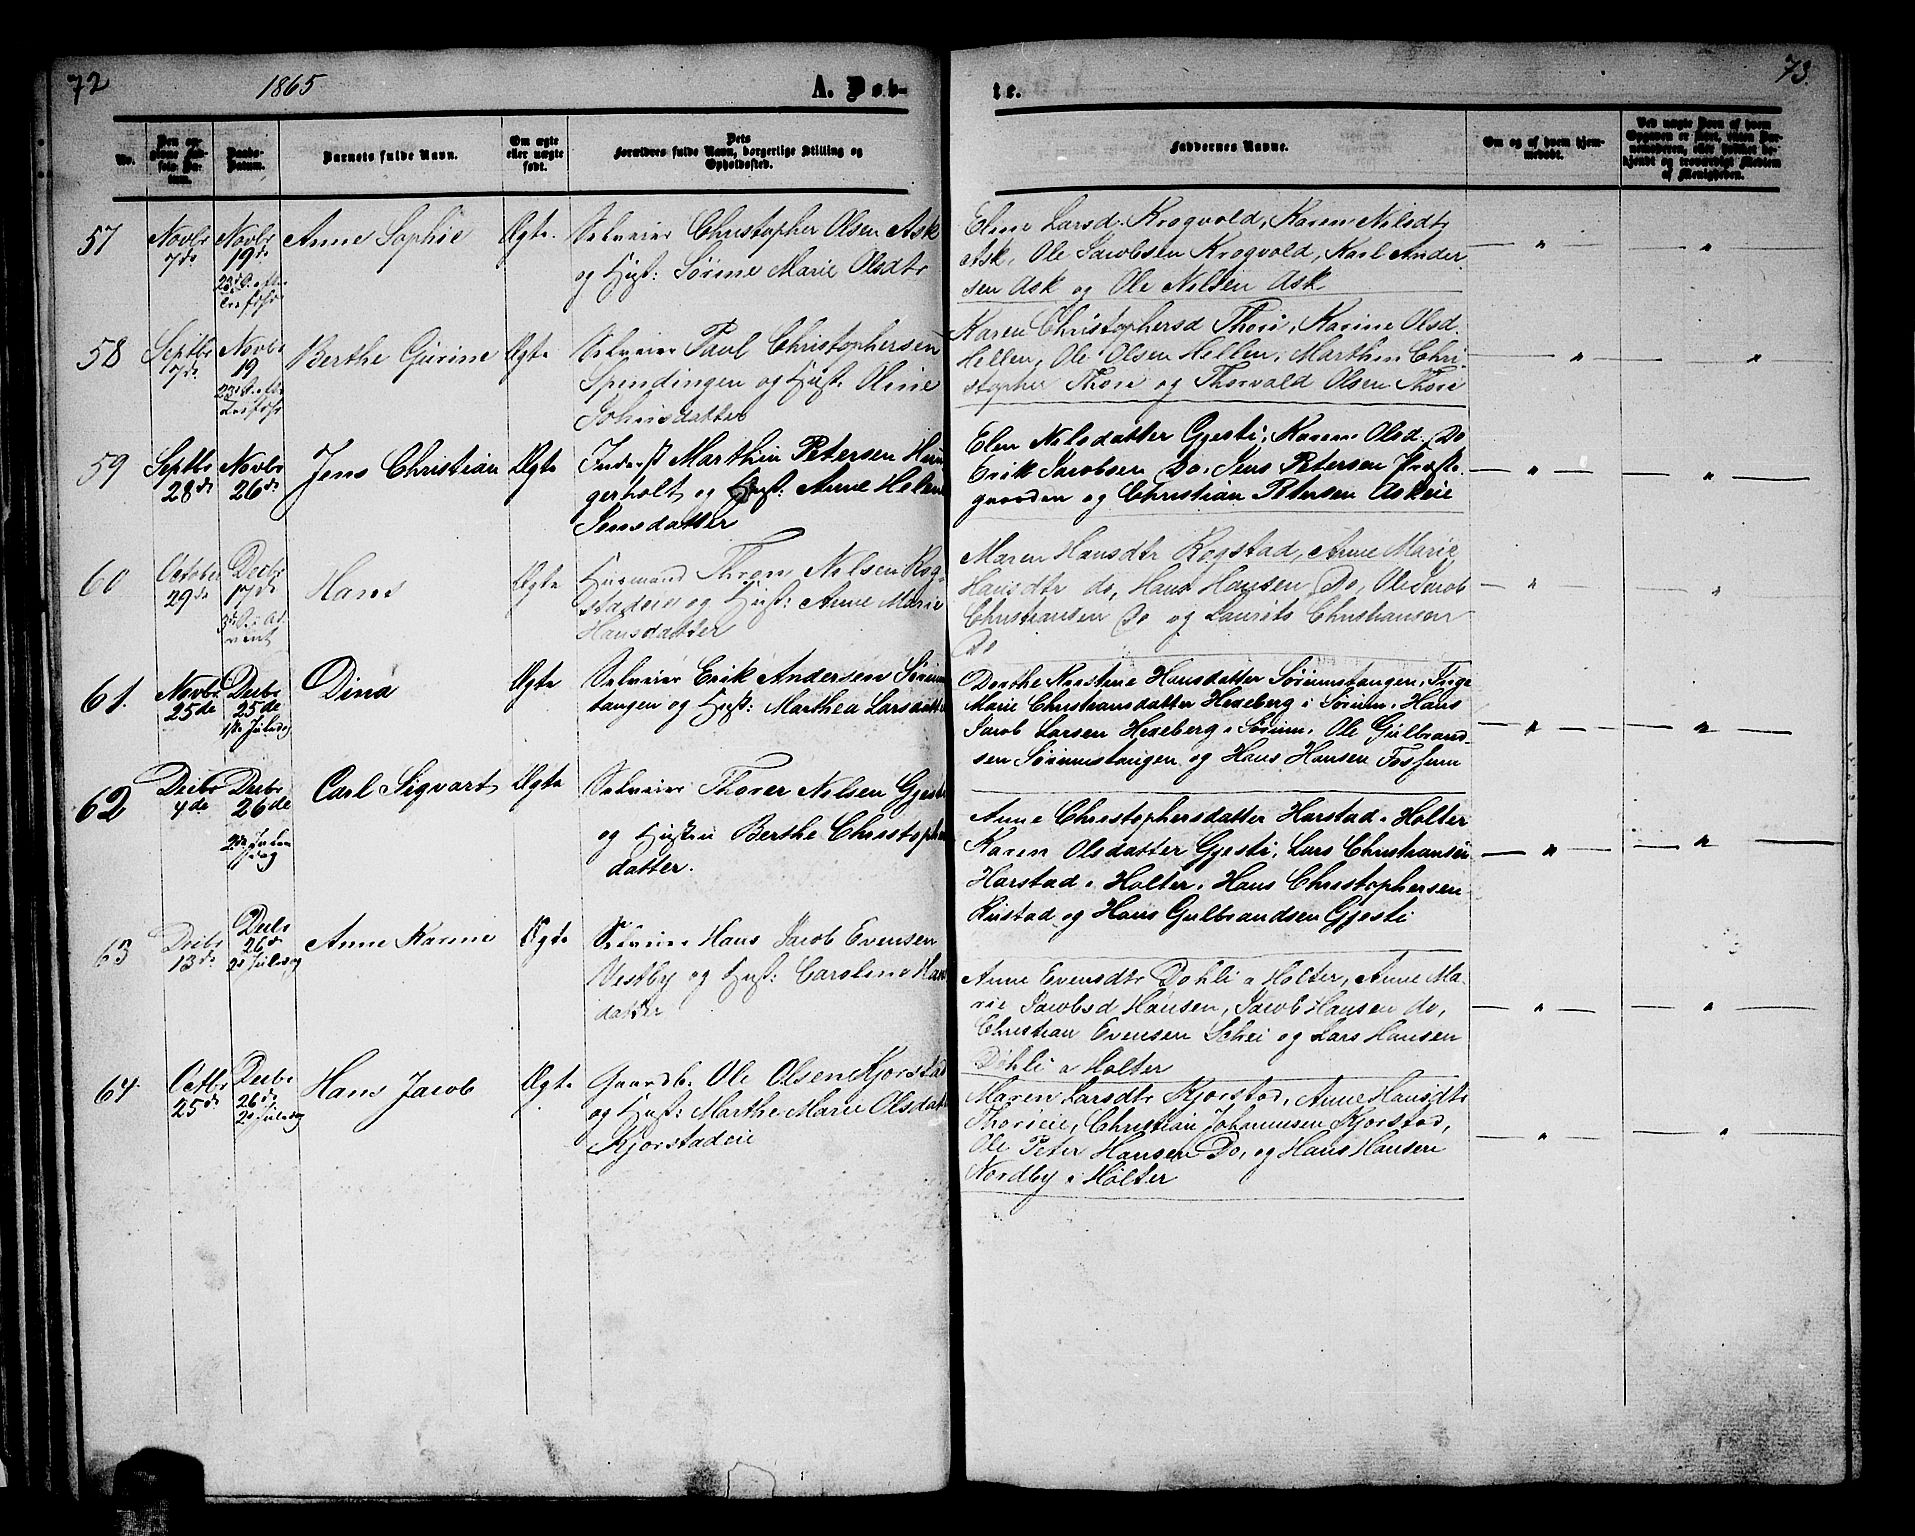 72
1865
A. Døb-
te.
73.
No.
Den op-
givne Fød-
sels Da-
tum.
Daabs-
Datum.
Barnets fulde Navn.
Om ægte
eller uægte
født.
Dets
Forældres fulde Navn, borgerlige Stilling og
Opholdssted.
Faddernes Navne.
Om og af hvem hjem-
medøbt.
Ved uægte Børn af hvem
Opgaven er sket, uden For-
af Menigheden.
57 Novbr 7de Novbr 19de Anne Sophie Ægte. Selveier Christopher Olsen Ask
23d S. efter Trefoldh
og Hust: Sørine Marie Olsdtr
Eline Larsd. Krogvold, Karen Nilsdtr
Ask, Ole Jacobsen Krogvold, Karl Ander-
sen Ask og Ole Nilsen Ask
58 Septbr 7de Novbr 19 Berthe Gurine Ægte Selveier Paul Christophersen
23d S. efter Trefoldh
Spendingen og Hust. Oline
Johnsdatter
Karen Christophersd Thori, Karine Olsd.
Hellen, Ole Olsen Hellen, Marthin Chri-
stopher Thori og Thorvald Olsen Thori
59 Septbr 28de Novbr 26de Jens Christian Ægte Inderst Marthin Petersen Hun
gerholt og Hust: Anne Helene
Jensdatter
Elen Nilsdatter Gjesti, Karen Olsd. Do
Erik Jacobsen Do, Jens Petersen Præste-
gaarden og Christian Petersen Askeie
60 October 29de Decbr 17de Hans Ægte Husmand Thron Nilsen Rog-
3d S. i Ad-
vent
stadeie og Hust: Anne Marie
Hansdatter
Maren Hansdtr Rogstad, Anne Marie
Hansdtr do, Hans Hansen Do, Ole Jacob
Christiansen Do og Laurits Christiansen
Do
61. Novbr. 25de Decbr 25de Dina Ægte Selveier Erik Andersen Sørum
1ste Juledag
tangen og Hust: Marthea Larsdatter
Dorthe Kirstine Hansdatter Sørumstangen, Inge
Marie Christiansdatter Hexeberg i Sørum, Hans
Jacob Larsen Hexeberg i Sørum, Ole Gulbrand-
sen Sørumstangen og Hans Hansen Fossum
62 Decbr 4de Decbr 26de Carl Sigvart Ægte Selveier Thorer Nilsen Gjesti
2de Jule
dag
og Hustru Berthe Christophers
datter.
Anne Christophersdatter Harstad i Holter
Karen Olsdatter Gjesti, Lars Christiansen
Harstad i Holter, Hans Christophersen
Kustad og Hans Gulbrandsen Gjesti
63 Decbr 13de Decbr 26de Anne Karine Ægte Selveier Hans Jacob Evensen
2d Juledag
Vestby og Hust: Caroline Hans
datter
Anne Evensdtr Dohli a Holter, Anne Ma-
rie Jacobsd Hansen, Jacob Hansen do,
Christian Evensen Schei og Lars Hansen
Dohli a Holter
64. Octbr 25de Decbr 26de Hans Jacob Ægte Gaardb. Ole Olsen Kjorstad
2d Juledag
og Hust: Marthe Marie Olsdatter
Kjorstadeie
Maren Larsdtr Kjorstad, Anne Hansdtr
Thorieie, Christian Johannesen Kjorstad,
Ole Peter Hansen Do, og Hans Hansen
Nordby i Holter